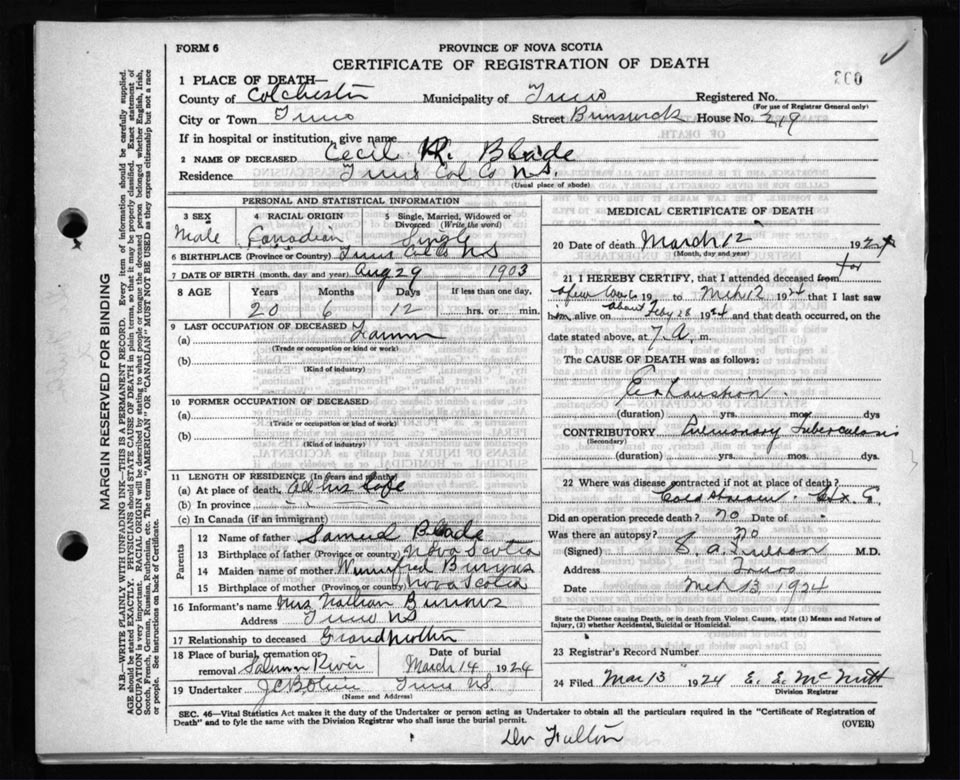 FORM 6
PROVINCE OF NOVA SCOTIA
CERTIFICATE OF REGISTRATION OF DEATH
1 PLACE OF DEATH—
County of Colchester Municipality of Truro Registered No.
(For use of Registrar General only)
City or Town Truro Street Brunswick House No. 219
If in hospital or institution, give name
2 NAME OF DECEASED Cecil R. Blade
Residence Truro Col Co NS.
(Usual place of abode)
PERSONAL AND STATISTICAL INFORMATION
3 SEX 4 RACIAL ORIGIN 5 Single, Married, Widowed or Divorced (Write the word)
Male Canadian Single
6 BIRTHPLACE (Province or Country) Truro Col Co NS
7 DATE OF BIRTH (month, day and year) Aug 29 1903
8 AGE Years Months Days If less than one day,
20 6 12 hrs. or min.
9 LAST OCCUPATION OF DECEASED
(a)
(Trade or occupation or kind of work)
(b)
(Kind of industry)
10 FORMER OCCUPATION OF DECEASED
(a)
(Trade or occupation or kind of work)
(b)
(Kind of industry)
11 LENGTH OF RESIDENCE (In years and months)
(a) At place of death, All his Life
(b) In province
(c) In Canada (if an immigrant)
Parents
12 Name of father Samuel Blade
13 Birthplace of father (Province or country) Nova Scotia
14 Maiden name of mother Winnifred
15 Birthplace of mother (Province or country) Nova Scotia
16 Informant's name Mrs Nathan Burrows
Address Truro NS
17 Relationship to deceased Grandmother
18 Place of burial, cremation or removal Salmon River Date of burial March 14 1924
19 Undertaker Truro NS.
(Name and Address)
MEDICAL CERTIFICATE OF DEATH
20 Date of death March 12 1924
(Month, day and year)
21 I HEREBY CERTIFY, that I attended deceased from
19 to Mch 12 1924 that I last saw
him alive on about Feby 28 1924 and that death occurred, on the
date stated above, at 7 A. m.
The CAUSE OF DEATH was as follows:
Exhaustion
(duration) yrs. mos. dys
CONTRIBUTORY Pulmonary Tuberculosis
(Secondary)
(duration) yrs. mos. dys.
22 Where was disease contracted if not at place of death?
Did an operation precede death? no Date of
Was there an autopsy? no
(Signed) M.D.
Address Truro
Date Mch 13 1924
State the Disease causing Death, or in death from Violent Causes, state (1) Means and Nature of Injury, (2) whether Accidental, Suicidal or Homicidal.
23 Registrar's Record Number
24 Filed Mar 13 1924 E. E. McNutt
Division Registrar
SEC. 46—Vital Statistics Act makes it the duty of the Undertaker or person acting as Undertaker to obtain all the particulars required in the "Certificate of Registration of
Death" and to fyle the same with the Division Registrar who shall issue the burial permit. (OVER)
Dr Fulton
MARGIN RESERVED FOR BINDING
N.B.—WRITE PLAINLY WITH UNFADING INK—THIS IS A PERMANENT RECORD. Every item of information should be carefully supplied.
AGE should be stated EXACTLY. PHYSICIANS should STATE CAUSE OF DEATH in plain terms, so that it may be properly classified. Exact statement of
OCCUPATION is very important. RACIAL ORIGIN will be described by stating to what people or tongue the deceased person belonged whether English, Irish,
Scotch, French, German, Russian, Ruthenian, etc. The terms "AMERICAN" OR "CANADIAN" MUST NOT BE USED as they express citizenship but not a race
or people. See instructions on back of Certificate.